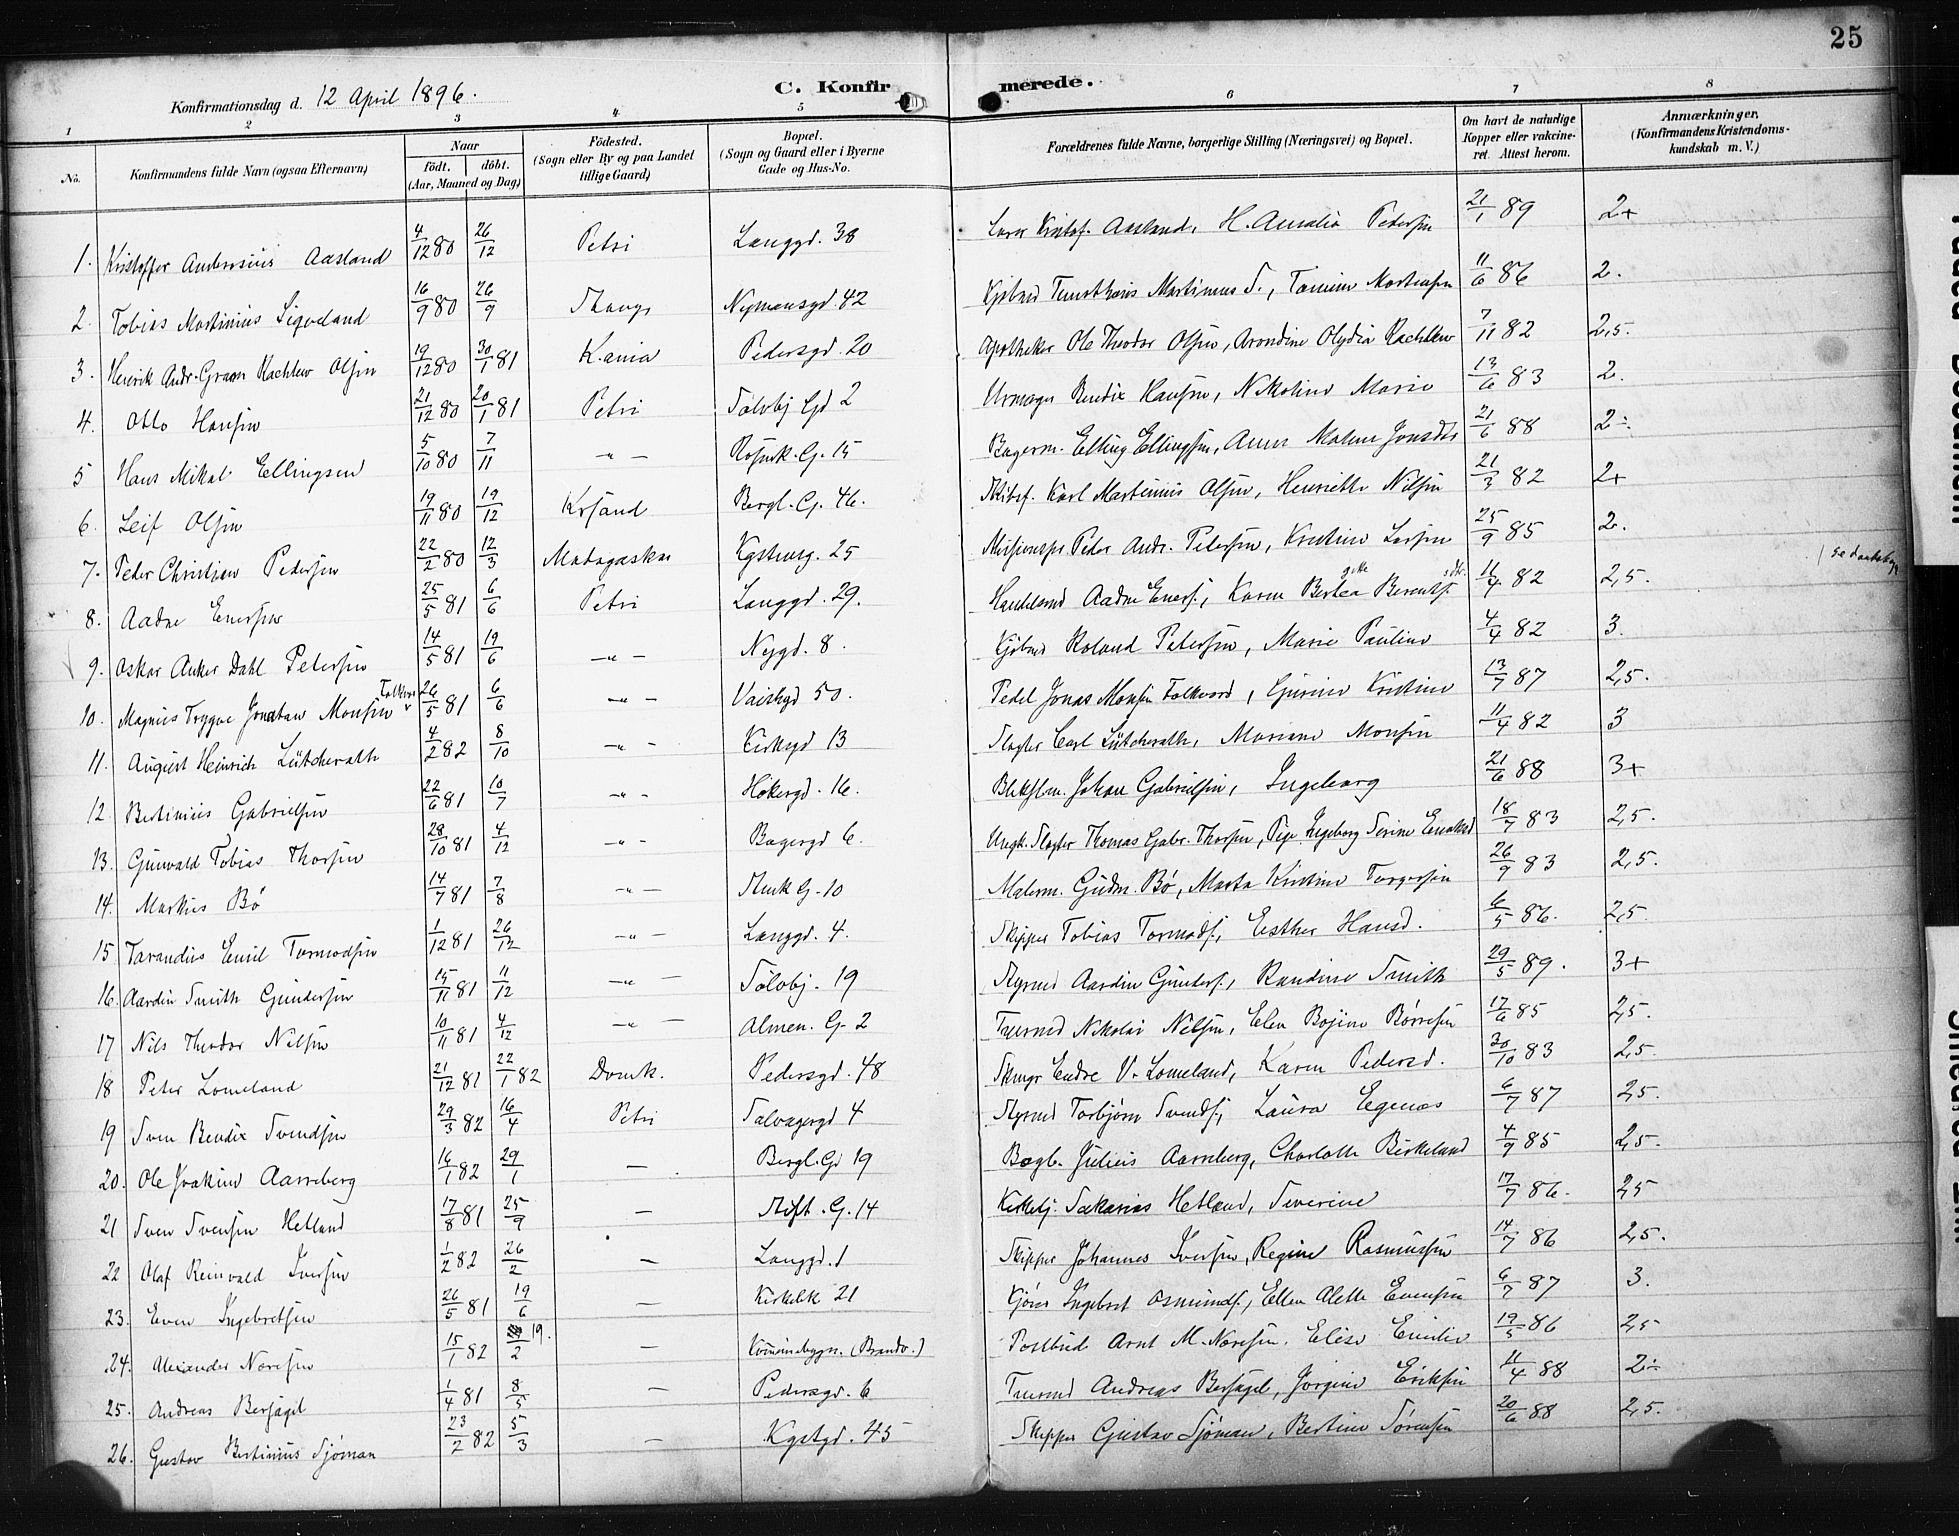 25
Konfirmationsdag d. 12 April 1896.
C. Konfirmerede.
1 2 3 4 5 6 7 8
No. Konfirmandens fulde Navn (ogsaa Efternavn) Naar Födt. döbt. (Aar, Maaned og Dag) Födested. (Sogn eller By og paa Landet tillige Gaard) Bopæl. (Sogn og Gaard eller i Byerne Gade og Hus-No. Forældrenes fulde Navne, borgerlige Stilling (Næringsvei) og Bopæl. Om havt de naturlige Kopper eller vakcineret. Attest herom. Anmærkninger. (Konfirmandens Kristendomskundskab m. V.)
1. Kristoffer Ambrosius Aasland 4/12 80 26/12 Petri Langgd. 38 Kristof. Aasland, H. Amalia Pedersen 21/1 89 2+
2. Tobias Martinius Sigveland 16/9 80 26/9 Stavgr Nymansgd. 42 Martinius S., Martinsen 11/6 86 2.
3. Henrik Andr. Gram Rachlew Olsen 19/12 80 30/1 81 K.ania Pedersgd. 20 Apotheker Ole Theodor Olsen, Arondine Olydia Rachlew 7/11 82 2,5.
4. Otto Hansen 21/12 80 20/1 81 Petri Tolvbj Gd 2 Urmager Bendix Hansen, Nikoline Marie 13/6 83 2.
5 Hans Mikal Ellingsen 5/10 80 7/11 -"- Rosenk. G. 15 Bagerm. Elling Ellingsen, Anne Malene Jonsdtr 21/6 88 2÷
6. Leif Olsen 19/11 80 19/12 Krsand Bergl. G. 46. Karl Martinius Olsen, Henriette Nilsen 21/3 82 2+
7. Peder Christian Pedersen 22/2 80 12/3 Madagaskar Kgstrusg. 25 Misjonspr Peder Andr. Petersen, Kristine Larsen 25/9 85 2.
8. Aadne Enersen 25/5 81 6/6 Petri Langgd. 29. Handelsmd Aadne Eners., Karen Bertea Berents. 11/4 82 2,5.
9. Oskar Anker Dahl Petersen 14/5 81 19/6 -"- Nygd. 8. Roland Petersen, Marie Pauline 4/4 82 3.
10. Magnus Trygve Jonatan Monsen Falkvor 26/5 81 6/6 -"- Vaishgd 50. Pedel Jonas Monsen Falkvord, Gurine Kristine 13/7 87 2,5.
11. August Heinrich Lütcherath 4/2 82 8/10 -"- Kirkegd 13 Slagter Carl Lütcherath, Mariane Monsen 11/4 82 3
12 Bertinius Gabrielsen 22/6 81 10/7 -"- Høkergd. 16. Blikslm. Johan Gabrielsen, Ingeborg 21/6 88 3+
13. Gunvald Tobias Thorsen 28/10 81 4/12 -"- Bagergd 6. Ungk. Slagter Thomas Gabr. Thorsen, Pige Ingeborg Serine 18/7 83 2,5.
14. Markus Bö 14/7 81 7/8 -"- G. 10 Malerm. Gudm. Bö, Marta Kristine Torgersen 26/9 83 2,5.
15 Tarandius Emil Tormodsen 1/12 81 26/12 -"- Langgd. 4. Skipper Tobias Tormods., Esther Hansd. 6/5 86. 2,5.
16. Aardin Smith Gundersen 15/11 81 11/12 -"- Tolvbj. 19 Styrmd Aardin Gunders., Randine Smith 29/5 89. 3+
17 Nils Theodor Nilsen 10/11 81 4/12 -"- Almen. G. 2 Nikolai Nilsen, Elen Bojine Börresen 17/6 85 2,5.
18 Peter Lomeland 21/12 81 22/1 82 Domk. Pedersgd. 48 Endre V. Lomeland, Karen Pedersd. 30/10 83 2,5.
19 Sven Bendix Svendsen 29/3 82 16/4 Petri Salvagergd 4 Styrmd Torbjørn Svends., Laura Egenes 6/7 87 2,5.
20. Ole Joakim Aarreberg 16/1 82 29/1 — Bergl. Gd 19 Bogb. Julius Aarreberg, Charlotte Birkeland 4/9 85 2,5.
21 Sven Svensen Hetland 17/8 81 25/9 — Stift. G. 14 Kirketj. Sakarias Hetland, Severine 17/7 86. 2,5
22 Olaf Reinvald Iversen 1/2 82 26/2 — Langgd. 1 Skipper Johannes Iversen, Regine Rasmussen 14/7 86 2,5.
23. Even Ingebretsen 26/5 81 19/6 — Kirkebk 21 Ingebret Osmunds., Ellen Alette Evensen 6/7 87 3.
24. Alexander Noresen 15/1 82 19/2 — (Brandv.) Postbud Arnt M. Noresen. Elise Emilie 19/5 86 2,5
25. Andreas Bersagel 1/4 81 8/5 — Pedersgd. 6 Andreas Bersagel, Jorgine Eriksen 11/4 88 2÷
26. Gustav Bertinius Sjöman 23/2 82 5/3 — Kgstgd. 45 Skipper Gustav Sjöman, Bertine Sörensen 20/6 88 2,5.